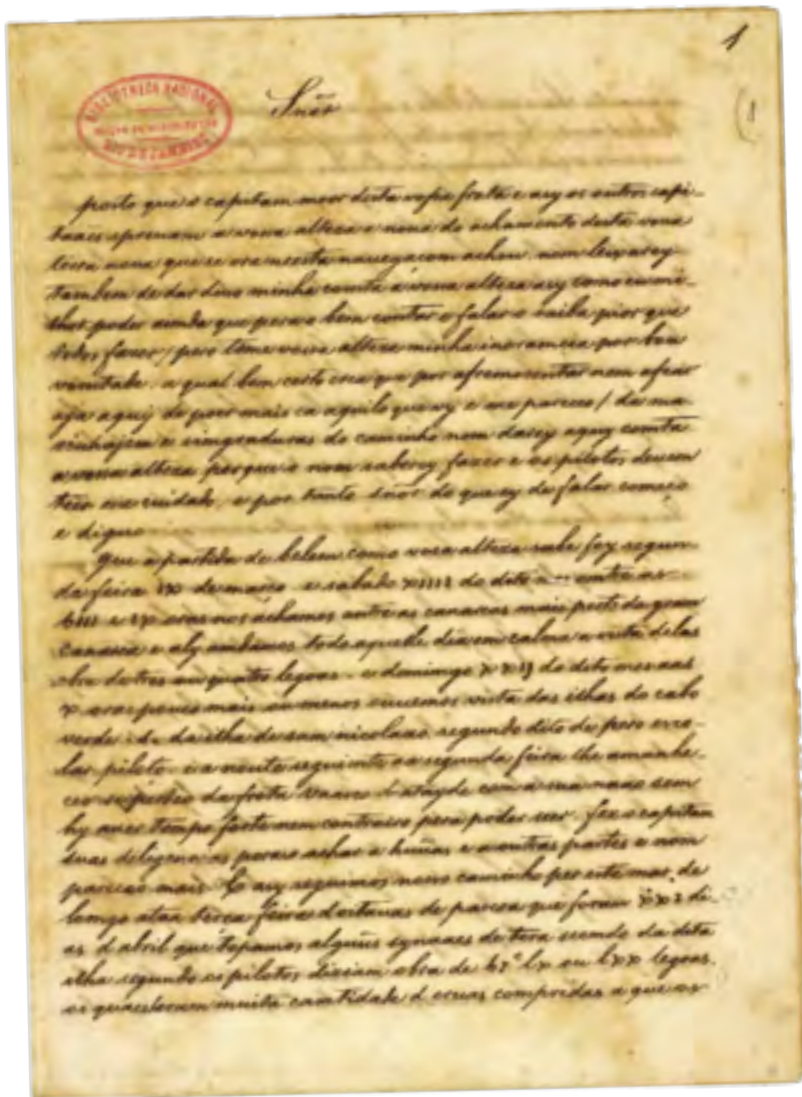 1
BIBLIOTHECA NACIONAL
RIO DE JANEIRO
Sñor
posto que o capitam moor desta vosa frota e asy os outros capi-
taaes sprevam a vosa alteza a nova do achamento desta vosa
terra nova que se ora nesta navegaçom achou. nom leixarey
tambem de dar diso minha comta a vosa alteza asy como eu mi-
lhor poder aimda que pera o bem contar e falar o saiba pior que
todos fazer / pero tome vosa alteza minha inoramcia por boa
vomtade. a qual bem certo crea que por afremosentar nem afear
aja aquy de poer mais ca aquilo que vy e me pareceo / da ma-
rinhajem e simgraduras do caminho nom darey aquy comta
a vosa alteza porque o nom saberey fazer e os pilotos devem
teer ese cuidado. e por tanto Sñor do que ey de falar começo
e diguo
que a partida de belem como vosa alteza sabe foy segun-
da feira ix de março. e sabado xiiii do dito entre as
biii e ix oras nos achamos antre as canareas mais perto da gram
canarea e aly amdamos todo aquele dia em calma a vista delas
obra de tres ou quatro legoas. e domingo xxij do dito mes aas
x oras pouco mais ou menos ouvemos vista das ilhas do cabo
verde. s. da ilha de sam nicolaao segundo dito de pero esco-
lar piloto. e a noute seguinte aa segunda feira lhe amanhe-
ceo se perdeo da frota vaasco d atayde com a sua naao sem
hy aver tempo forte nem contrairo pera poder seer. fez o capitam
suas diligencias pera o achar a huũas e a outras partes e nom
pareceo mais. E asy seguimos nosso caminho per este mar de
lomgo ataa terça feira d oitavas de pascoa que foram xxi di-
as d abril que topamos alguũs synaaes de tera seendo da dita
ilha segundo os pilotos deziam obra de bjᶜ lx ou lxx legoas.
os quaes heram muita camtidade d ervas compridas a que os